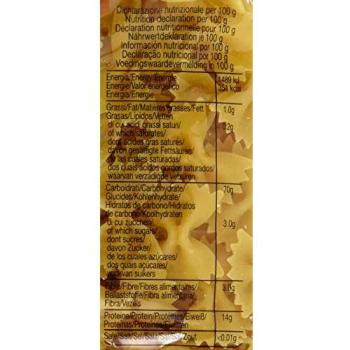 Dichiarazione nutrizionale per 100 g
Nutrition declaration per 100 g
Déclaration nutritionnelle pour 100 g
Nährwertdeklaration je 100 g
Información nutricional por 100 g
Declaração nutricional por 100 g
Voedingswaardevermelding in 100 g
Energia/Energy/Énergie
Energie/Valor energético
Energia/Energie
1489 kJ
351 kcal
Grassi/Fat/Matières grasses/Fett
Grasas/Lípidos/Vetten
1.0g
di cui acidi grassi saturi/
of which saturates/
dont acides gras saturés/
davon gesättigte Fettsäuren/
de las cuales saturadas/
dos quais ácidos gordos saturados/
waarvan verzadigde vetzuren
Carboidrati/Carbohydrate/
Glucides/Kohlenhydrate/
Hidratos de carbono/Hidratos
de carbono/Koolhydraten
70g
di cui zuccheri/
of which sugars/
dont sucres/
davon Zucker/
de los cuales azúcares/
dos quais açúcares/
waarvan suikers
3.0g
Fibre/Fibre/Fibres alimentaires/
Ballaststoffe/Fibra alimentaria/
Fibra/Vezels
3.0g
Proteine/Protein/Protéines/Eiweiß/
Proteínas/Proteínas/Eiwitten
14g
Sale/Salt/Sel/Salz/Sal/Sal/Zout
<0.01g